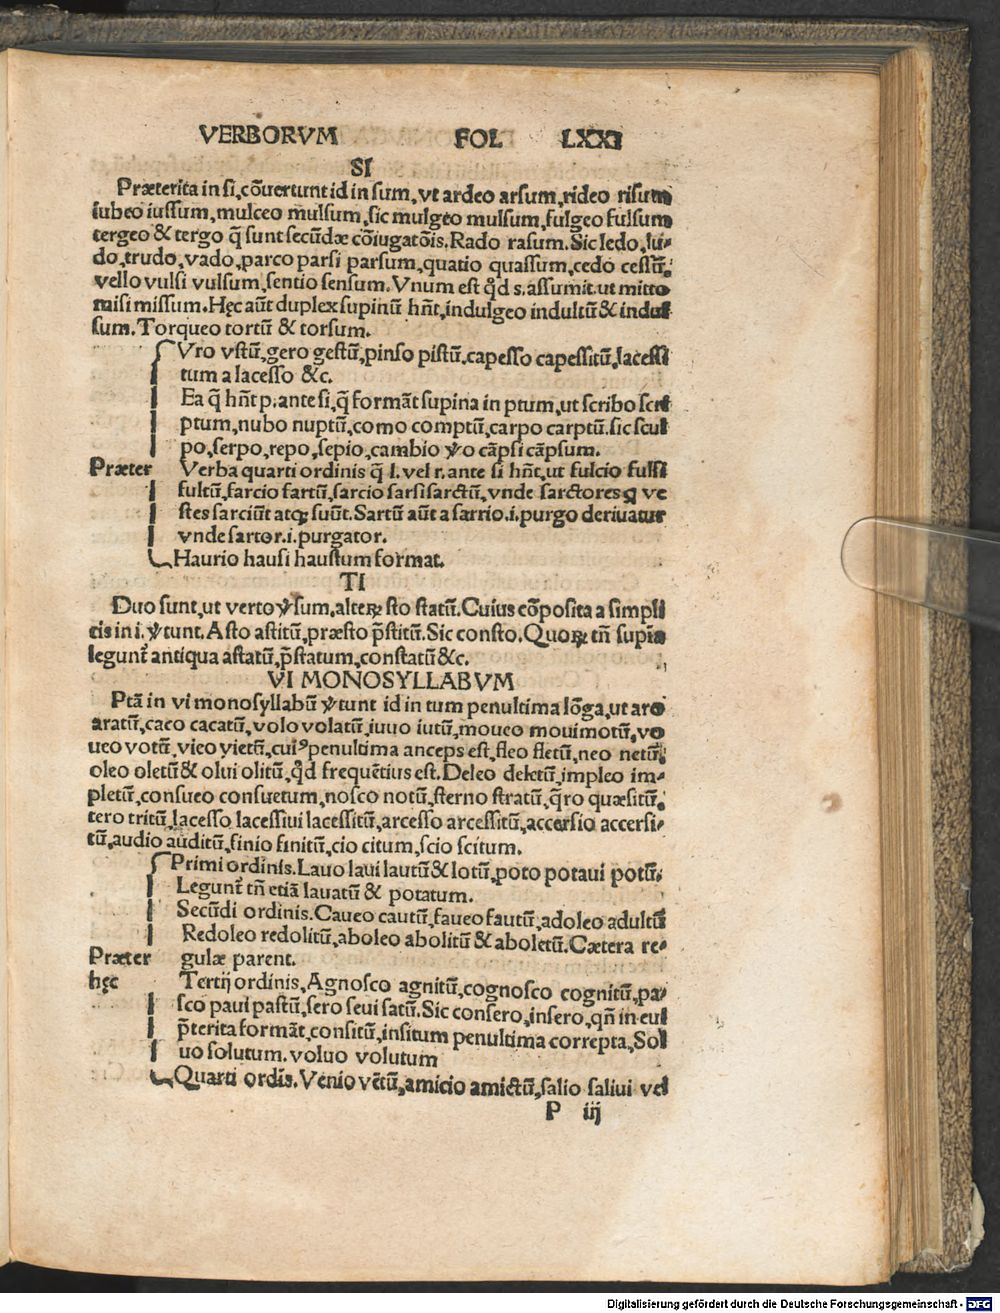 VERBORVM FOL LXXI
SI
Præterita in si, cõuertunt id in sum, vt ardeo arsum, rideo risum
iubeo iussum, mulceo mulsum, sic mulgeo mulsum, fulgeo fulsum
tergeo & tergo q̃ sunt secũdæ cõiugatõis. Rado rasum. Sic ledo, lu-
do, trudo, vado, parco parsi parsum, quatio quassum, cedo cessũ,
vello vulsi vulsum, sentio sensum. Vnum est qd s. assumit, ut mitto
misi missum. Hęc aũt duplex supinũ hñt, indulgeo indultũ & indul
sum. Torqueo tortũ & torsum.
Vro vstũ, gero gestũ, pinso pistũ, capesso capessitũ, lacessi
tum a lacesso &c.
Ea q̃ hñt p, ante si, q̃ formãt supina in ptum, ut scribo scri
ptum, nubo nuptũ, como comptũ, carpo carptũ, sic scul
po, serpo, repo, sepio, cambio ꝟo cãpsi cãpsum.
Præter Verba quarti ordinis q̃ l. vel r. ante si hñt, ut fulcio fulsi
fultũ, farcio fartũ, sarcio sarsi sarctũ, vnde sarctores q ve
stes sarciũt atqꝫ suũt. Sartũ aũt a sarrio .i. purgo deriuatur
vnde sartor .i. purgator.
Haurio hausi haustum format.
TI
Duo sunt, ut verto ꝟsum, alterꝝ sto statũ. Cuius cõposita a simpli
cis in i. ꝟtunt. Asto astitũ, præsto p̃stitũ. Sic consto. Quoꝝ tñ supĩa
legunt᷑ antiqua astatũ, p̃statum, constatũ &c.
VI MONOSYLLABVM
Ptã in vi monosyllabũ ꝟtunt id in tum penultima lõga, ut aro
aratũ, caco cacatũ, volo volatũ, iuuo iutũ, moueo moui motũ, vo
ueo votũ, vieo vietũ, cuiꝰ penultima anceps est, fleo fletũ, neo netũ,
oleo oletũ & olui olitũ, qd frequẽtius est. Deleo deletũ, impleo im-
pletũ, consueo consuetum, nosco notũ, sterno stratũ, q̃ro quæsitũ,
tero tritũ, lacesso lacessiui lacessitũ, arcesso arcessitũ, accersio accersi-
tũ, audio auditũ, finio finitũ, cio citum, scio scitum.
Primi ordinis. Lauo laui lautũ & lotũ, poto potaui potũ,
Legunt᷑ tñ etiã lauatũ & potatum.
Secũdi ordinis. Caueo cautũ, faueo fautũ, adoleo adultũ
Redoleo redolitũ, aboleo abolitũ & aboletũ. Cætera re-
Præter gulæ parent.
hęc Tertij ordinis, Agnosco agnitũ, cognosco cognitũ, pa-
sco paui pastũ, sero seui satũ. Sic consero, insero, qñ in eui
p̃terita formãt, consitũ, insitum penultima correpta, Sol
uo solutum. voluo volutum
Quarti ordis. Venio vẽtũ, amicio amictũ, salio saliui vel
P iij
Digitalisierung gefördert durch die Deutsche Forschungsgemeinschaft - DFG